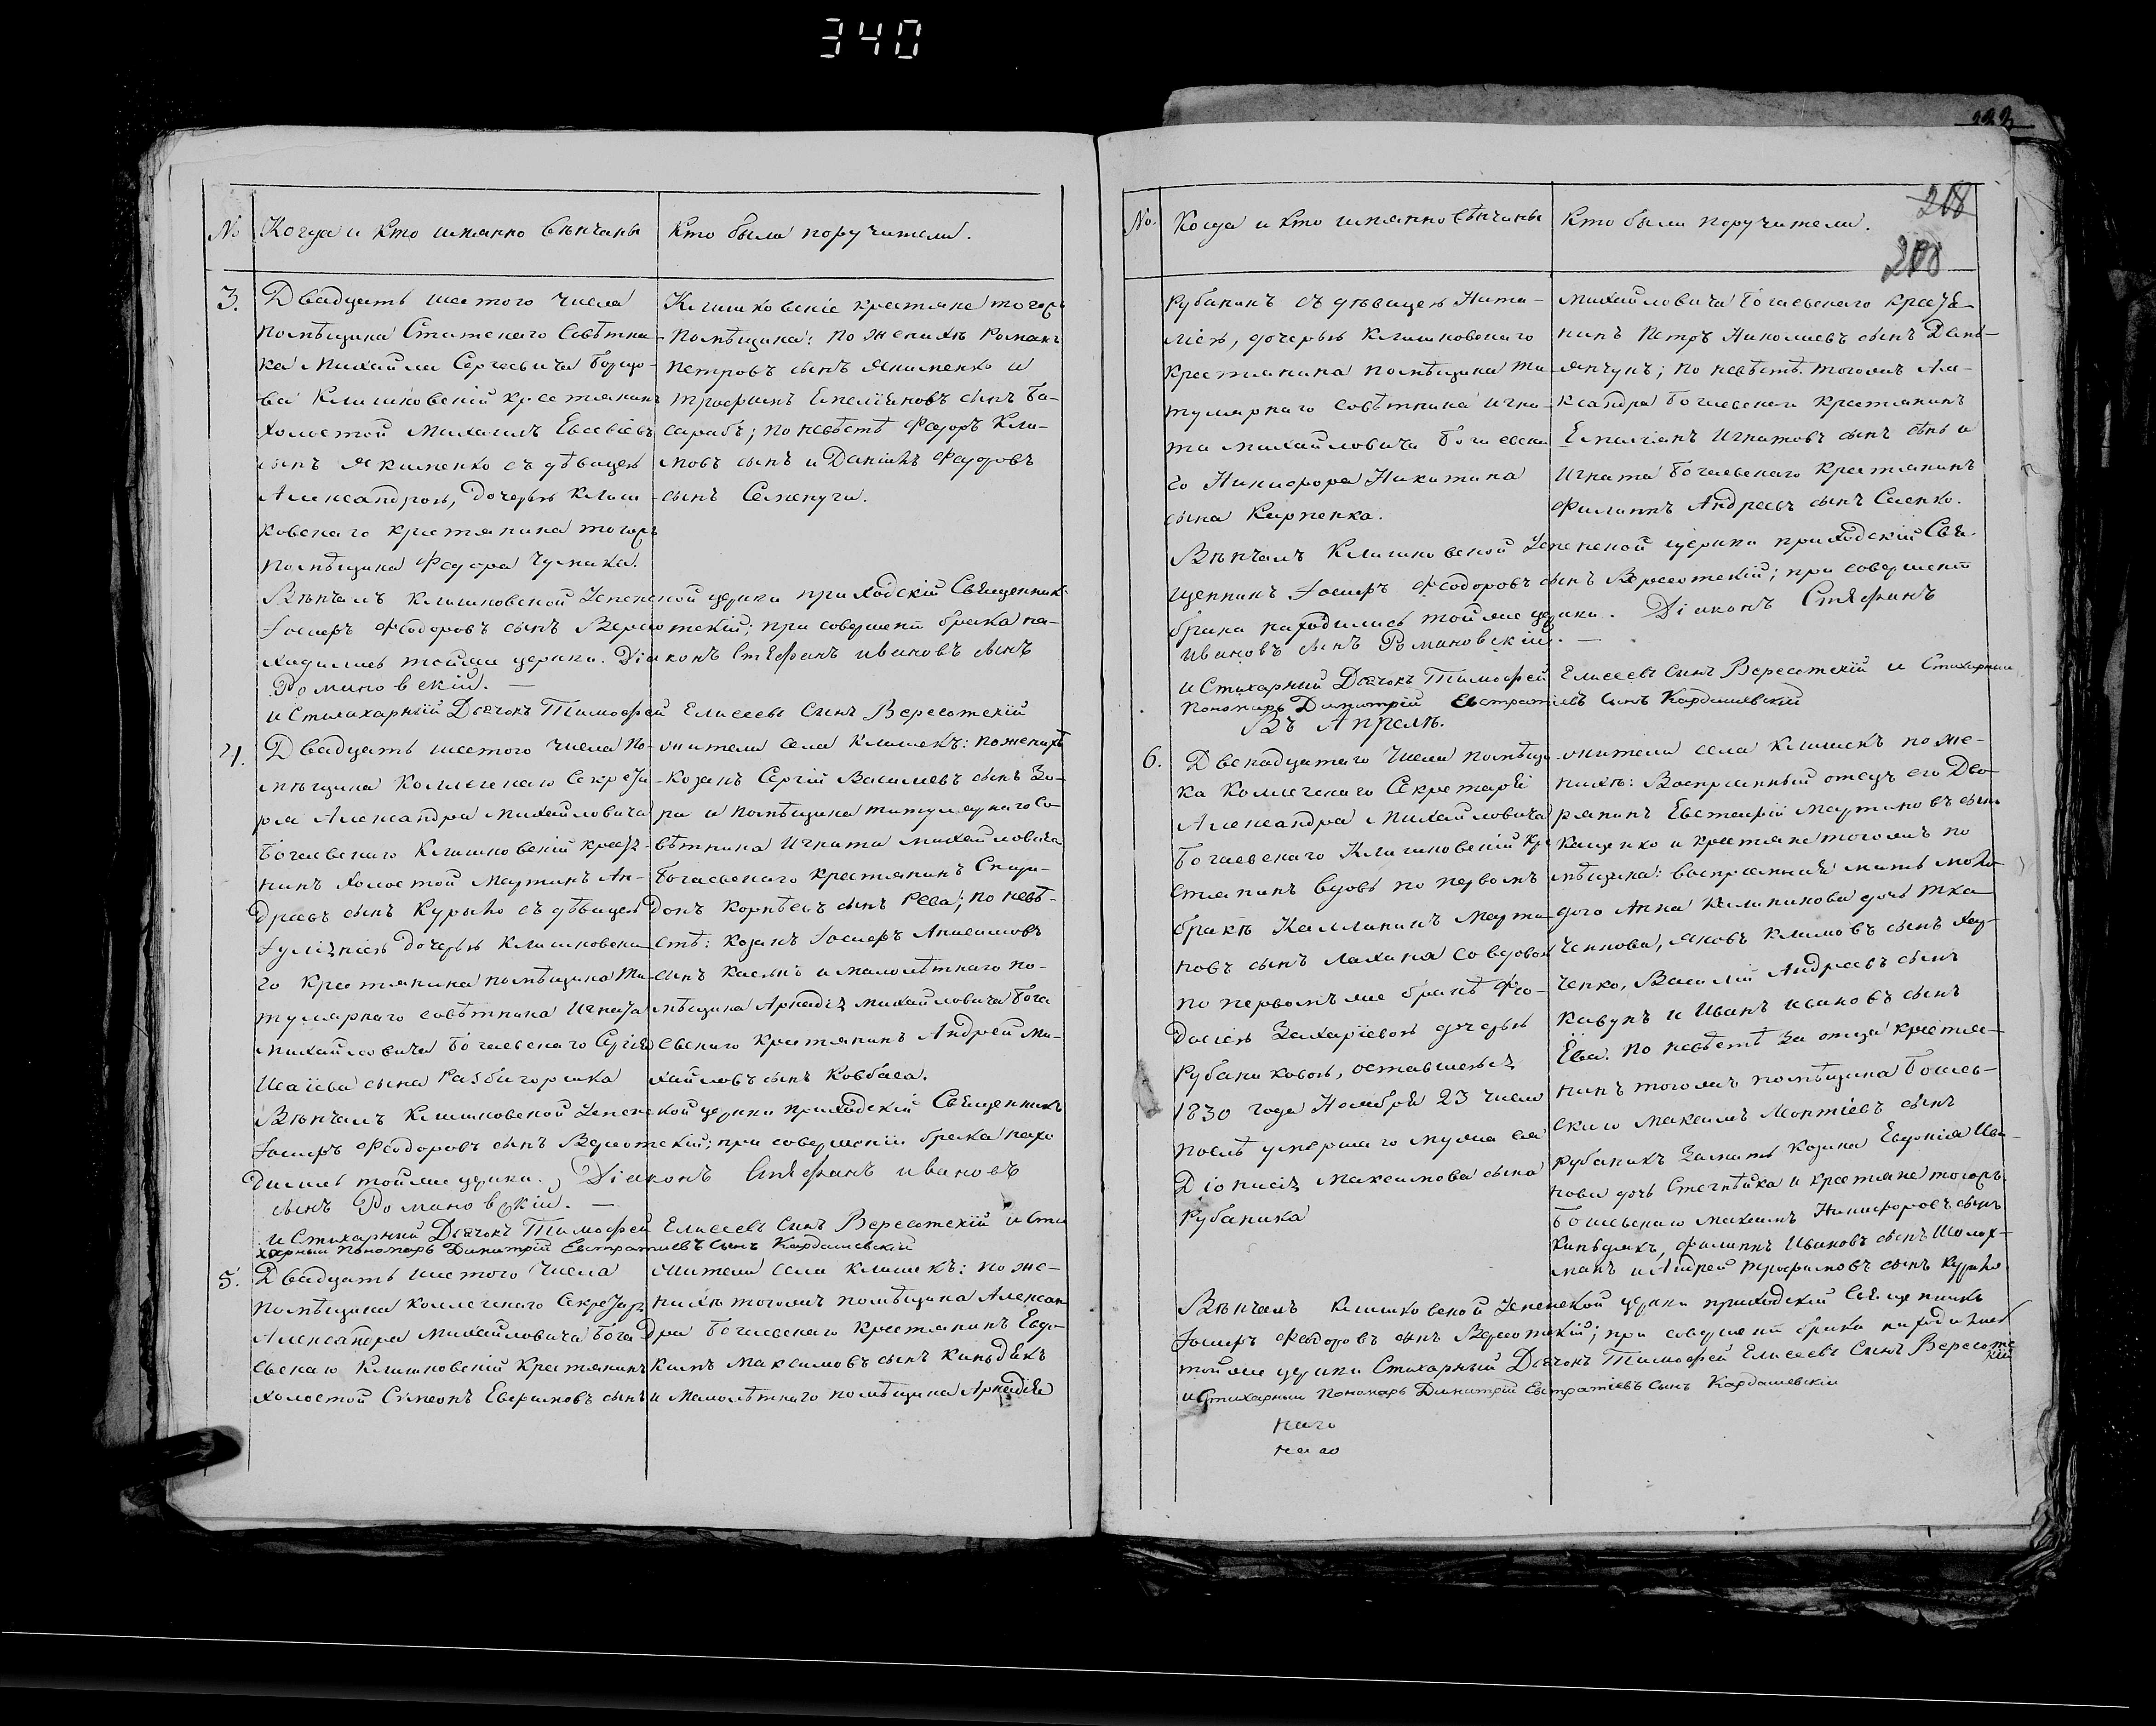 340
222
№ Когда и кто имянно вѣнчаны
Кто были поручители.
3. Двадцять шестого числа
помѣщика Статскаго Совѣтни-
ка Михайла Сергеевича
Клишковскій крестянинъ
холостой Михаилъ Евсевіевъ
сынъ Якименко съ дѣвицею
Александрою, дочерью Клиш-
ковскаго крестянина тогожъ
помѣщика Федора Чумака.
Клишковскіе крестяне тогожъ
помѣщика: по женихѣ Романъ
Петровъ сынъ Якименко и
Трофимъ Емеліановъ сынъ Ба-
сарабъ; по невѣстѣ Федоръ Кли-
мовъ сынъ и Даніилъ Федоровъ
сынъ Семенуги.
Вѣнчалъ Клишковской Успенской церкви приходскій Священникъ
Іосифъ Феодоровъ сынъ Вересотскій; при совершеніи брака на-
ходились тойже церкви. Діаконъ Стефанъ Ивановъ сынъ
Романовскій. —
и Стихарный Дьячокъ Тимофей Елисеевъ Сынъ Вересотскій
4. Двадцять шестого числа по-
мѣщика Коллежскаго Секрета-
ря Александра Михайловича
Богаевскаго Клишковскій крестя-
нинъ холостой Мартинъ Ан-
дреевъ сынъ Курыло съ дѣвицею
Іуліаніею дочерью Клишковска-
го крестянина помѣщика Ти-
тулярнаго совѣтника Игната
Михайловича Богаевскаго Сергія
Исаіева сына Разбигоршка
жители села Клишекъ: по женихѣ
козакъ Сергій Василіевъ сынъ За-
ра и помѣщика титулярнаго Со-
вѣтника Игната Михайловича
Богаевскаго крестянинъ Спири-
донъ Корнѣевъ сынъ Рева; по невѣ-
стѣ: козакъ Іосифъ Анисимовъ
сынъ Касянъ и малолѣтнаго по-
мѣщика Аркадія Михайловича Бога
евскаго крестянинъ Андрей Ми-
хайловъ сынъ Ковбаса.
Вѣнчалъ Клишковской Успенской церкви приходскій Священникъ
Іосифъ Феодоровъ сынъ Вересотскій; при совершеніи брака нахо
дились тойже церкви. Діаконъ Стефанъ Ивановъ
сынъ Романовскій. —
и Стихарный Дьячокъ Тимофей Елисеевъ Сынъ Вересотскій и Сти
харный пономарь Димитрій Евстратіевъ Сынъ Кардашевскій
5. Двадцять шестого числа
помѣщика коллежскаго Секретаря
Александра Михайловича Бога
евскаго Клишковскій Крестянинъ
холостой Симеонъ Евфимовъ сынъ
жители села Клишекъ: по же-
нихѣ тогожъ помѣщика Алексан
дра Богаевскаго крестянинъ Евдо-
кимъ Максимовъ сынъ Киндякъ
и малолѣтнаго помѣщика Аркадія
218
208
№. Когда и кто имянно вѣнчаны
Кто были поручители.
Рубаникъ съ дѣвицею Ната-
ліею, дочерью Клишковскаго
крестянина помѣщика Ти-
тулярнаго совѣтника Игна-
та Михайловича Богаевска
го Никифора Никитина
сына Карпенка.
Михайловича Богаевскаго крестя-
нинъ Петръ Николаевъ сынъ
по невѣстѣ. тогожъ Але-
ксандра Богаевскаго крестянинъ
Емеліянъ Игнатовъ сынъ и
Игната Богаевскаго крестянинъ
Филиппъ Андреевъ сынъ Саенко.
Вѣнчалъ Клишковской Успенской церкви приходскій Свя-
щенникъ Іосифъ Феодоровъ сынъ Вересотскій; при совершеніи
брака находились тойже церкви. Діаконъ Стефанъ
Ивановъ сынъ Романовскій. —
и Стихарный Дьячокъ Тимофей Елисеевъ Сынъ Вересотскій и Стихарный
пономарь Димитрій Евстратіевъ Сынъ Кардашевскій
Въ Апрелѣ.
6. Двенадцятаго числа помѣщи-
ка Коллежскаго Секретаря
Александра Михайловича
Богаевскаго Клишковскій кре
стянинъ вдовъ по первомъ
бракѣ Каллиникъ Марти-
новъ сынъ Лахина со вдовою
по первомъ же бракѣ Фео-
досіею Захаріевою дочерью
Рубаниковою, оставшеюся
1830 года Ноября 23 числа
послѣ умершаго мужа ея
Діонисія Максимова сына
Рубаника
жители села Клишекъ по же-
нихѣ: Воспріемный отецъ его Дво-
рянинъ Евстафій Мартиновъ сынъ
Кащенко и крестяне тогожъ по
мѣщика: воспріемная мать моло-
дого Анна Калиникова дочь Тка
ченкова, Яковъ Климовъ сынъ Хар-
ченко, Василій Андреевъ сынъ
Кавунъ и Иванъ Ивановъ сынъ
Ева. По невѣстѣ за отца крестя-
нинъ тогожъ помѣщика Богаев-
скаго Максимъ Леонтіевъ сынъ
Рубаникъ За мать козачка Евдокія Ива-
нова дочь и крестяне тогожъ
Богаевскаго Максимъ Никифоровъ сынъ
Киндякъ, Филиппъ Ивановъ сынъ Шолох-
манъ и Андрей Трофимовъ сынъ Курило
Вѣнчалъ Клишковской Успенской церкви приходскій Священникъ
Іосифъ Феодоровъ сынъ Вересотскій; при совершеніи брака находились
тойже церкви Стихарный Дьячокъ Тимофей Елисеевъ Сынъ Вересотс
кій
и Стихарный пономарь Димитрій Евстратіевъ Сынъ Кардашевскій
наго